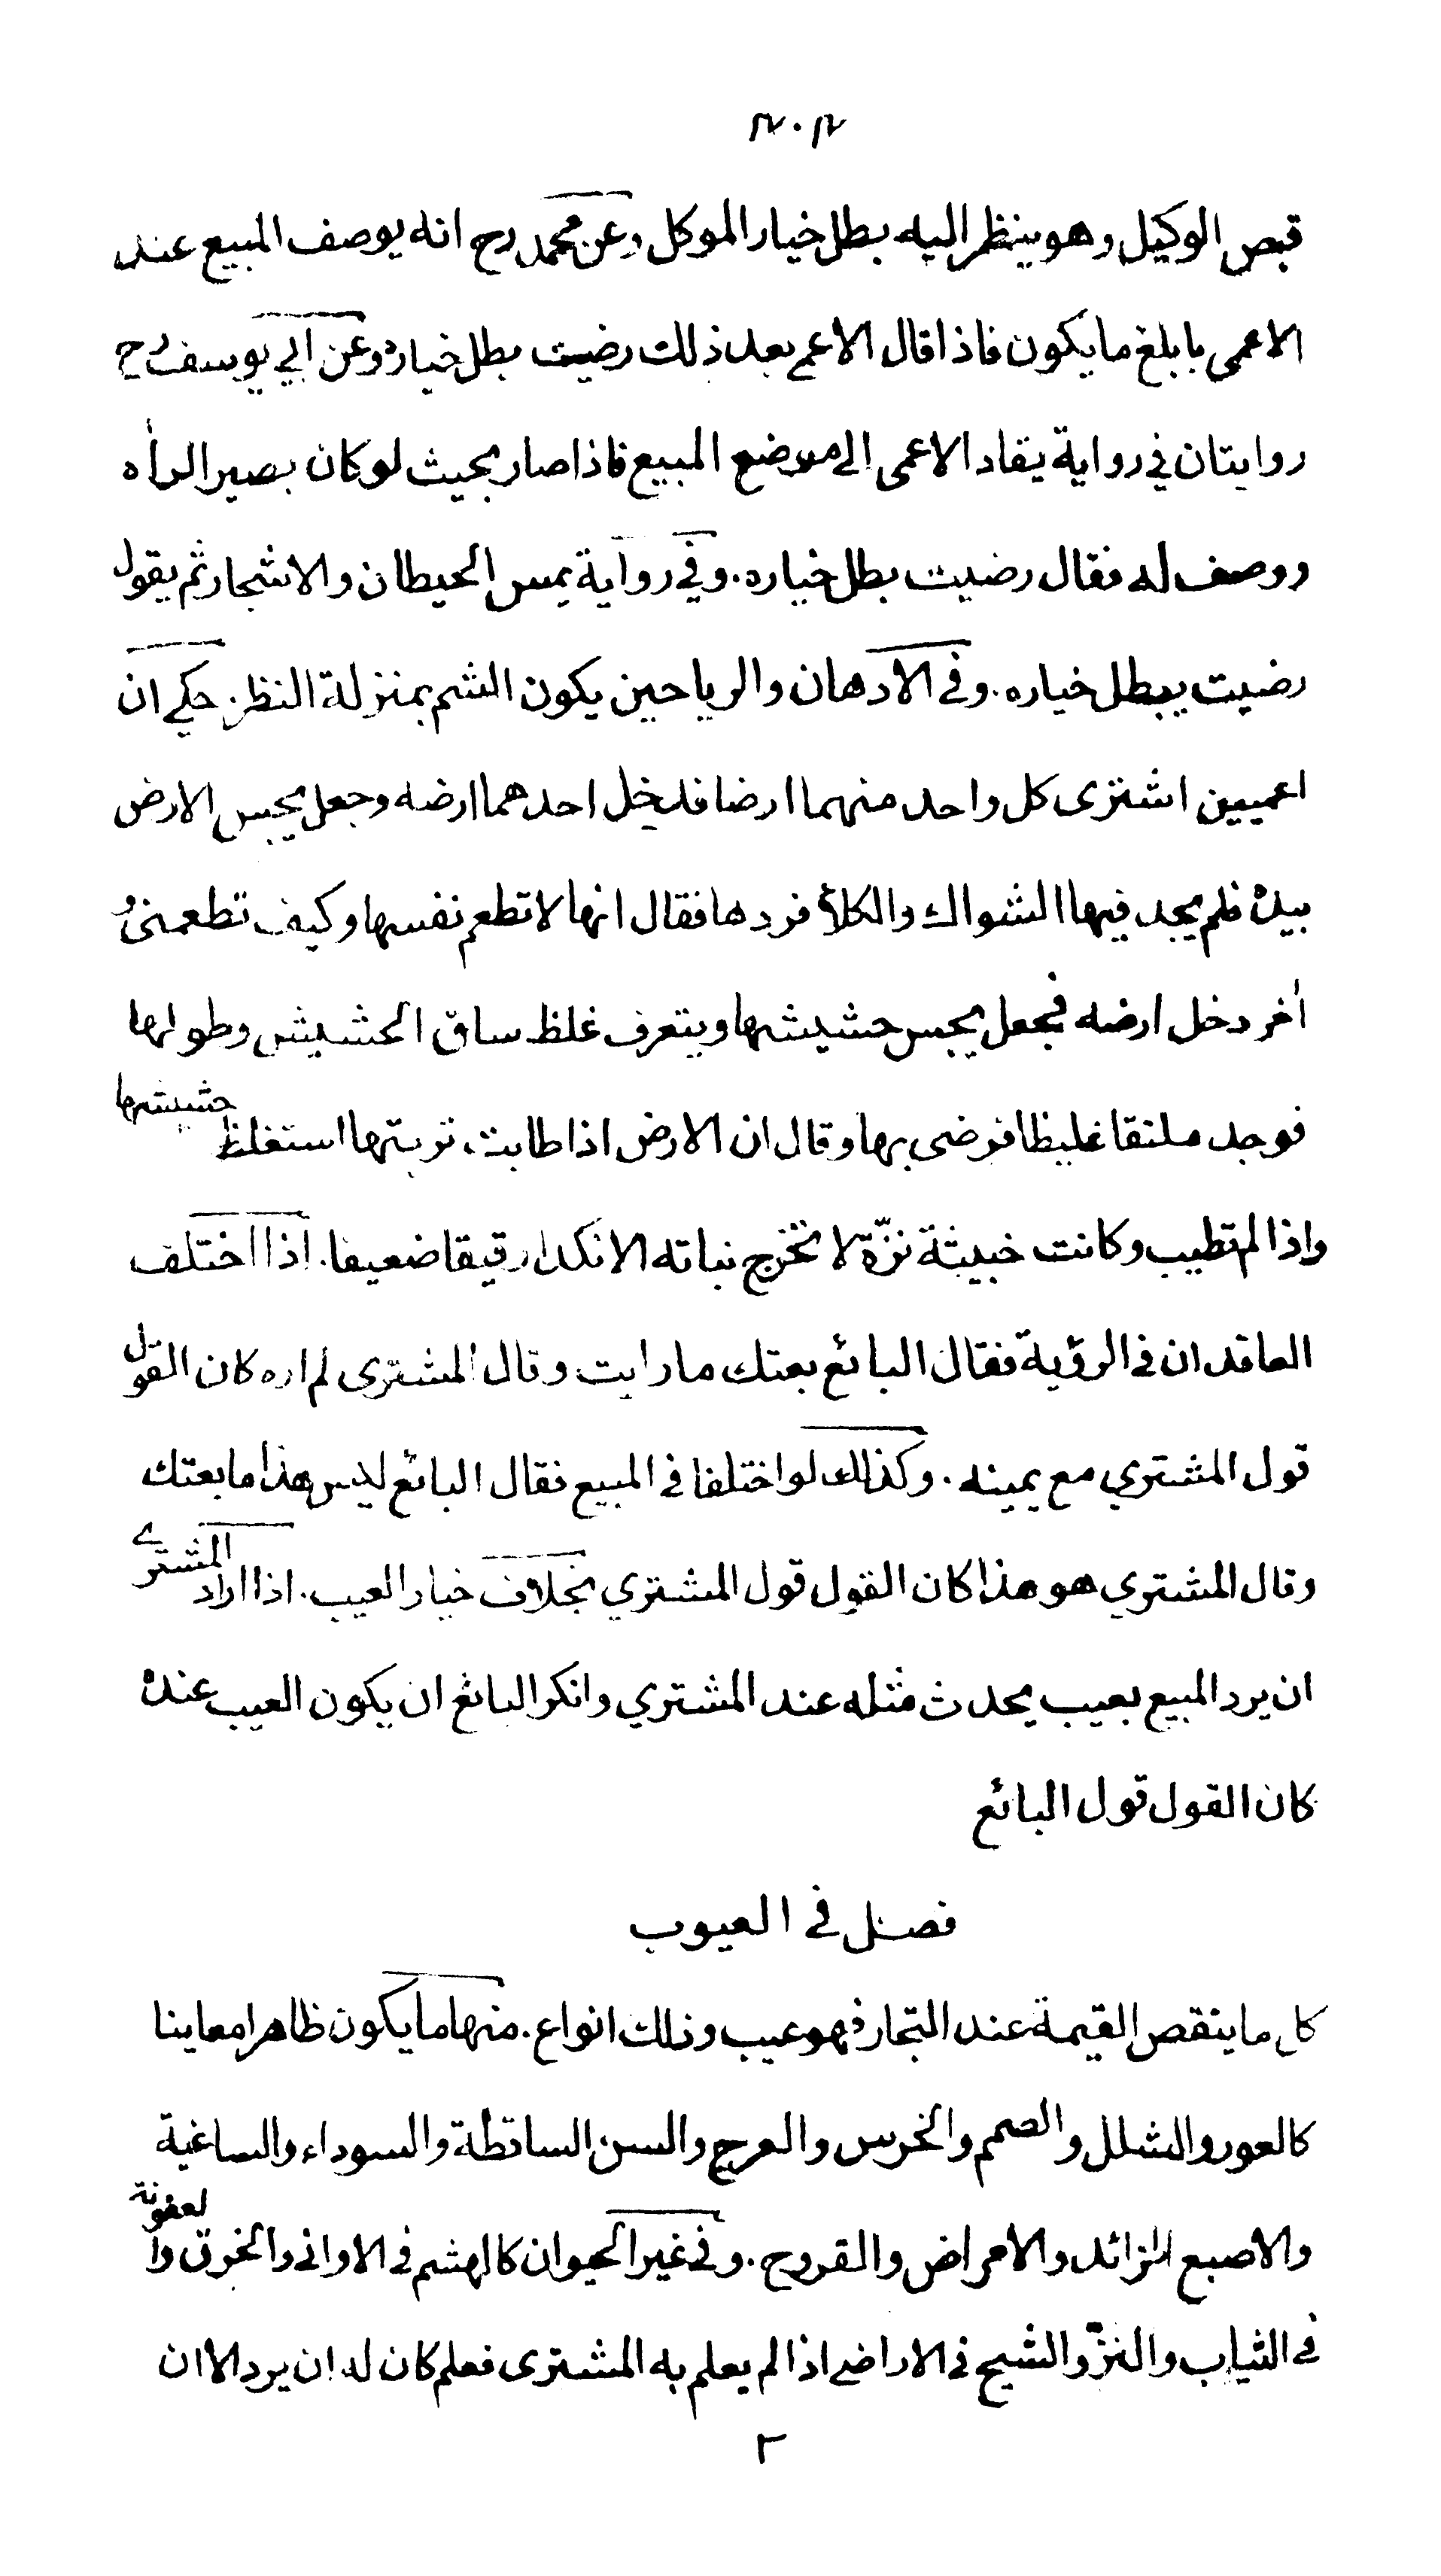 ٢٠٢
قبص الوكيل وهو ينظر اليه بطل خيار الموكل وعن محمد رح انه يوصف المبيع عند
الاعمى بابلغ ما يكون فاذا قال الاعمى بعد ذلك رضيت بطل خياره وعن ابي يوسف رح
روايتان في رواية يقاد الاعمى الى موضع المبيع فاذا صار بحيث لو كان بصيرا لرأه
ووصف له فقال رضيت بطل خياره . وفي رواية يمس الحيطان والاشجار ثم يقول
رضيت يبطل خياره . وفي الادهان والرياحين يكون الشم بمنزلة النظر . حكي ان
اعميين اشترى كل واحد منهما ارضا فدخل احدهما ارضه وجعل يجس الارض
بيده فلم يجد فيها الشواك والكلأ فردها فقال انها لا تطعم نفسها وكيف تطعمني و
أخر دخل ارضه فجعل يجس حشيشها ويتعرف غلظ ساق الحشيش وطولها
فوجد ملتفا غليظا فرضى بها وقال ان الارض اذا طابت تربتها استغلظ حشيشها
واذا لم تطيب وكانت خبيثة نزّة لا تخرج نباته الا نكدا رقيقا ضعيفا . اذا اختلف
العاقدان في الرؤية فقال البائع بعتك ما رايت وقال المشترى لم اره كان القول
قول المشتري مع يمينه . وكذلك لو اختلفا في المبيع فقال البائع ليس هذا ما بعتك
وقال المشتري هو هذا كان القول قول المشتري بخلاف خيار العيب . اذا اراد المشترے
ان يرد المبيع بعيب يحدث مثله عند المشتري وانكر البائع ان يكون العيب عنده
كان القول قول البائع
فصل في العيوب
كل ما ينقص القيمة عند التجار فهو عيب وذلك انواع . منها ما يكون ظاهرا معاينا
كالعور والشلل والصمم والخرس والعرج والسن الساقطة والسوداء والساغية
والاصبع الزائد والامراض والقروح . وفي غير الحيوان كالهشم في الاواني والخرق والعفونة
في الثياب والنزّ والشيح في الاراضي اذا لم يعلم به المشترى فعلم كان له ان يرد الا ان